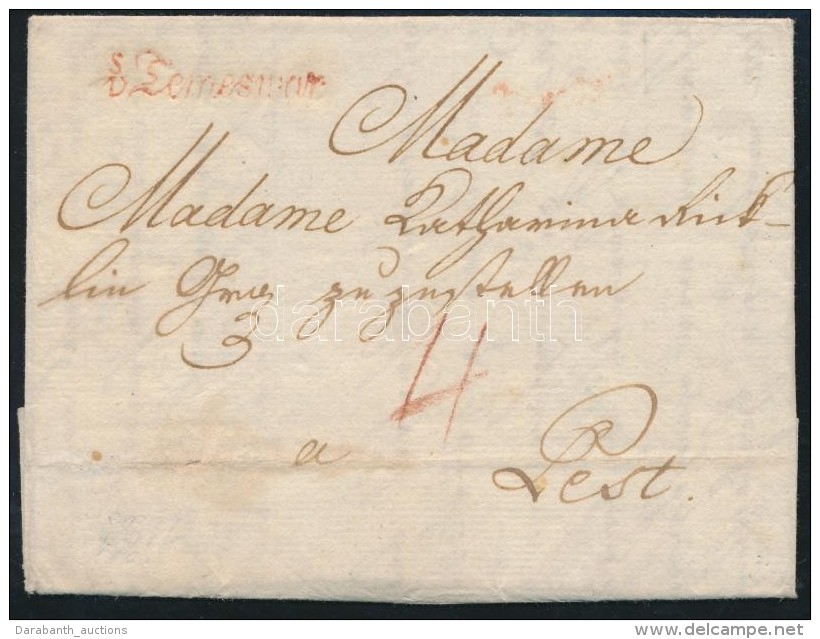 S
v Temeswar
Madame
Madame Katharina Rick-
lin zuzustellen
4
a Pest.
darabanth
Darabanth_auctions
delcampe.net